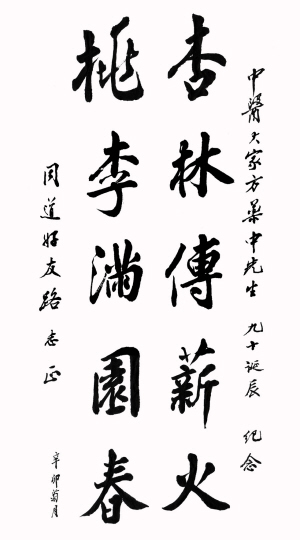 中醫大家方藥中先生 九十誕辰 紀念
杏林傳薪火
桃李滿園春
同道好友路志正
辛卯菊月